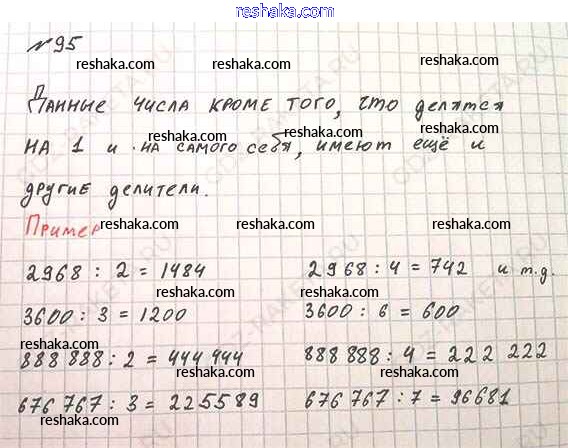 reshaka.com
№95
reshaka.com reshaka.com reshaka.com
Данные числа кроме того, что делятся
reshaka.com reshaka.com
на 1 и на самого себя, имеют ещё и
reshaka.com reshaka.com
другие делители.
Пример reshaka.com reshaka.com reshaka.com
2968 : 2 = 1484 2968 : 4 = 742 и т.д.
reshaka.com reshaka.com
3600 : 3 = 1200 3600 : 6 = 600
reshaka.com reshaka.com reshaka.com
888 888 : 2 = 444 444 888 888 : 4 = 222 222
reshaka.com reshaka.com
676 767 : 3 = 225589 676 767 : 7 = 96681
reshaka.com reshaka.com reshaka.com